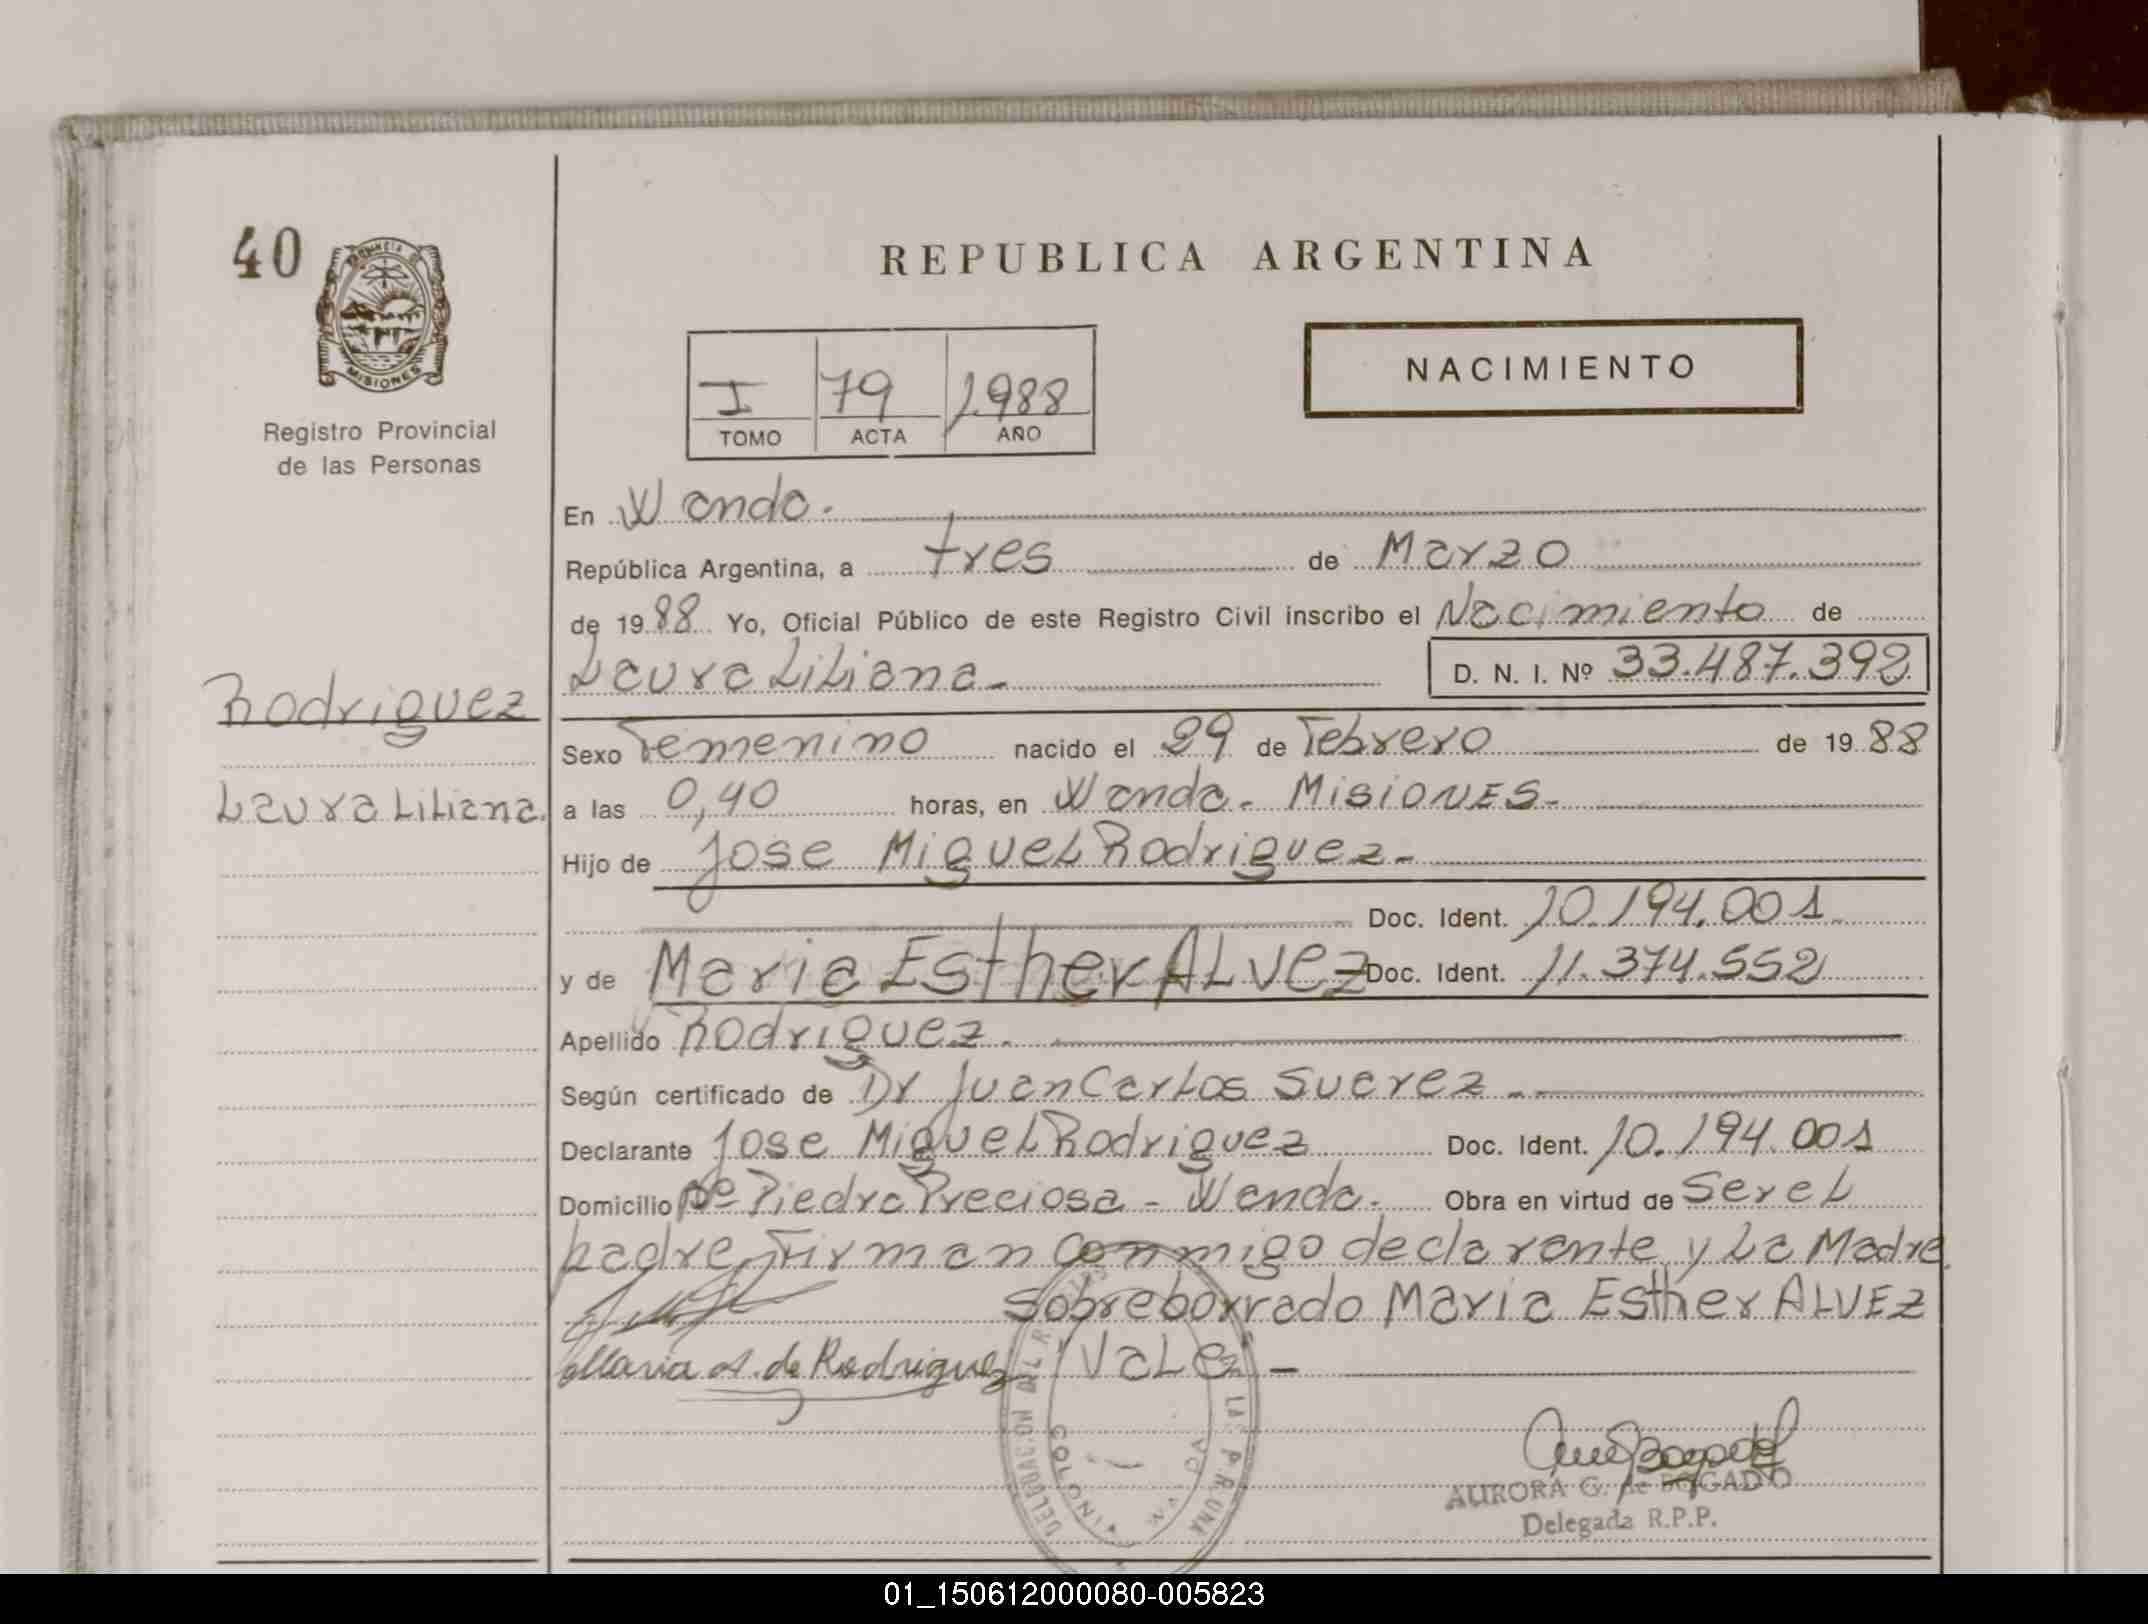 40
PROVINCIA D
MISIONES
Registro Provincial
de las Personas
REPUBLICA ARGENTINA
NACIMIENTO
I 79 1988
TOMO ACTA AÑO
En Wanda.
República Argentina, a tres de Marzo
de 1988 Yo, Oficial Público de este Registro Civil inscribo el Nacimiento de
Laura Liliana- D. N. I. Nº 33.487.392
Rodriguez
Sexo Femenino nacido el 29 de Febrero de 1988
Laura Liliana. a las 0,40 horas, en Wanda- Misiones-
Hijo de Jose Miguel Rodriguez-
Doc. Ident. 10.194.001
y de Maria Esther ALVEZ Doc. Ident. 11.374.552
Apellido Rodriguez.
Según certificado de Dr Juan Carlos Suarez-
Declarante Jose Miguel Rodriguez Doc. Ident. 10.194.001
Domicilio Bº Piedra Preciosa - Wanda. Obra en virtud de Ser el
padre, Firman Conmigo declarante y La Madre
Sobreborrado Maria Esther ALVEZ
Maria A. de Rodriguez VaLe-
DELEGACION DEL R DE LAS P.
COLONIA WANDA
AURORA G. de BOGADO
Delegada R.P.P.
01_150612000080-005823